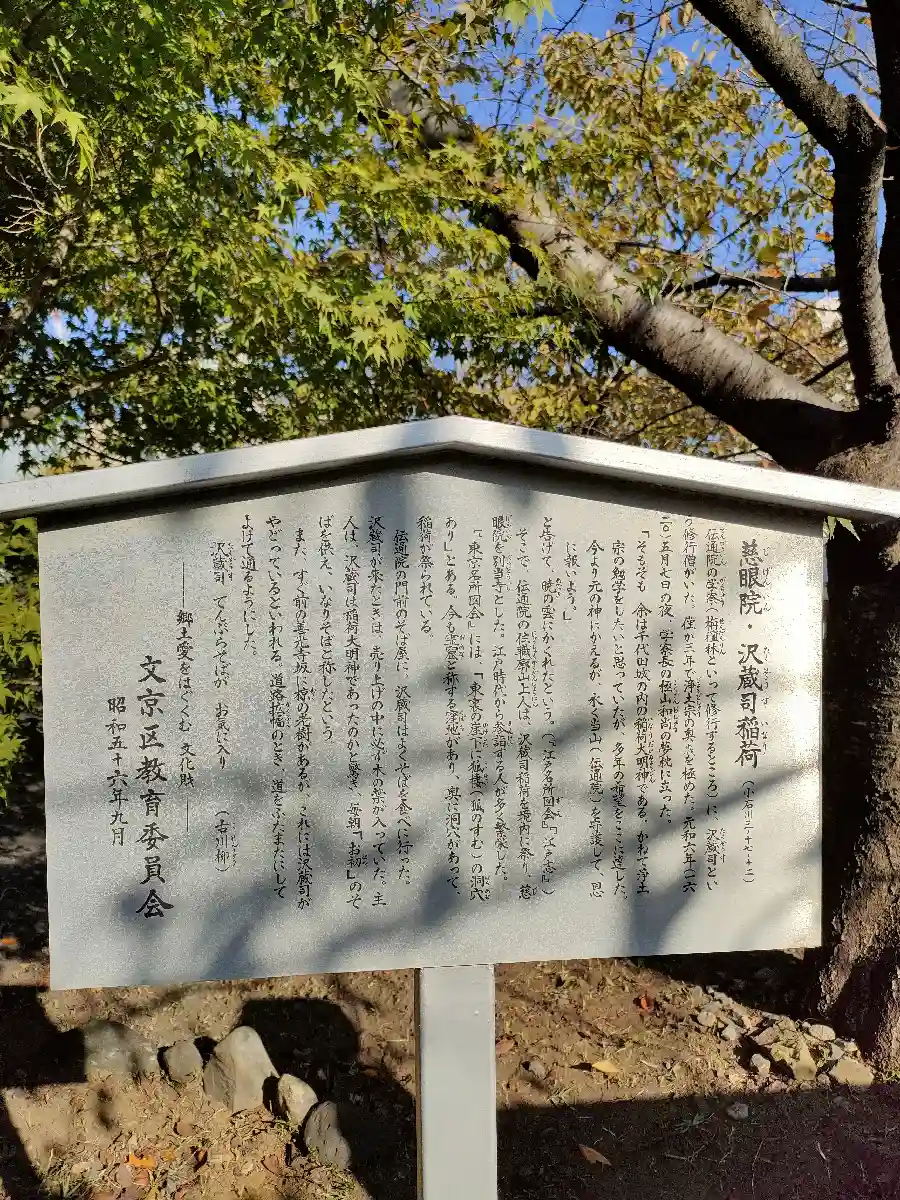 慈眼院・沢蔵司稲荷 (小石川三―十七―十二)
伝通院の学寮(栴檀林といって修行するところ)に、沢蔵司とい
う修行僧がいた。僅か三年で浄土宗の奥義を極めた。元和六年(一六
二〇)五月七日の夜、学寮長の極山和尚の夢枕に立った。
「そもそも 余は千代田城の内の稲荷大明神である。かねて浄土
宗の勉学をしたいと思っていたが、多年の希望をここに達した。
今より元の神にかえるが、永く当山(伝通院)を守護して、恩
に報いよう。」
と告げて、暁の雲にかくれたという。(「江戸名所図会」「江戸志」)
そこで、伝通院の住職廓山上人は、沢蔵司稲荷を境内に祭り、慈
眼院を別当寺とした。江戸時代から参詣する人が多く繁栄した。
「東京名所図会」には、「東裏の崖下に狐棲(狐のすむ)の洞穴
あり」とある。今も霊窟と称する窪地があり、奥に洞穴があって、
稲荷が祭られている。
伝通院の門前のそば屋に、沢蔵司はよくそばを食べに行った。
沢蔵司が来たときは、売り上げの中に必ず木の葉が入っていた。主
人は、沢蔵司は稲荷大明神であったのかと驚き、毎朝「お初」のそ
ばを供え、いなりそばと称したという。
また、すぐ前の善光寺坂に椋の老樹があるが、これには沢蔵司が
やどっているといわれる。道路拡幅のとき、道をふたまたにして
よけて通るようにした。
沢蔵司 てんぷらそばが お気に入り (古川柳)
――― 郷土愛をはぐくむ 文化財 ―――
文京区教育委員会
昭和五十六年九月